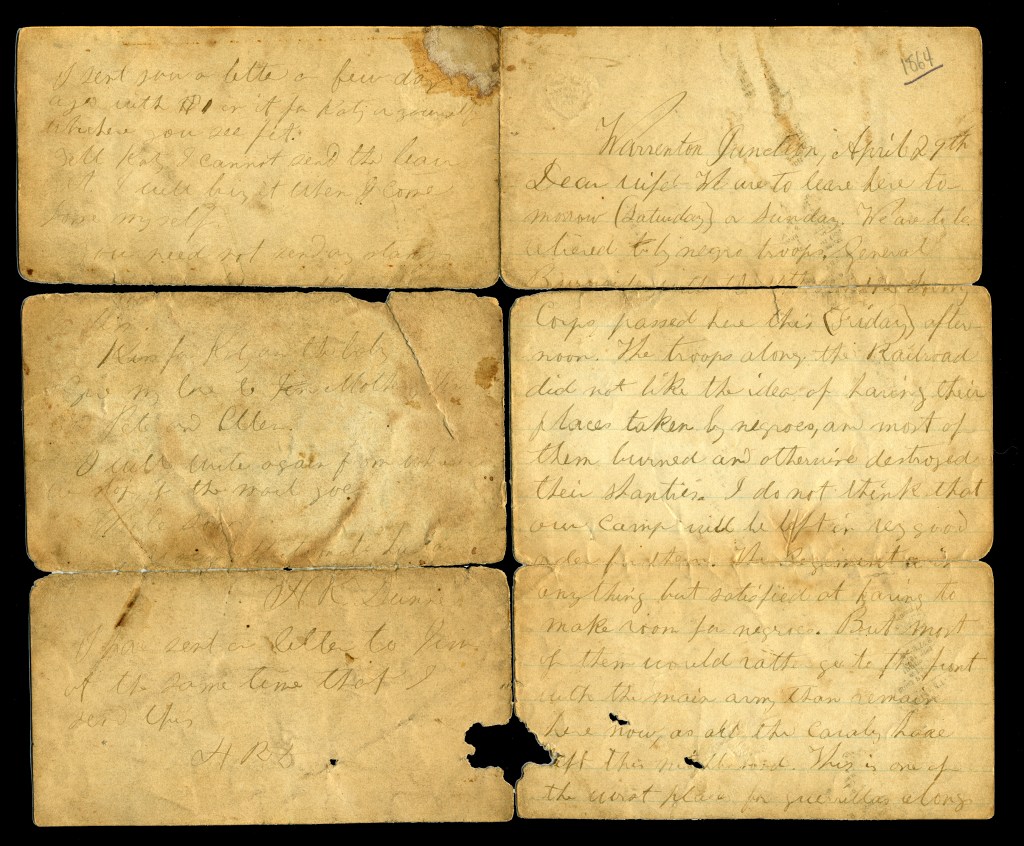 1864
Warrenton Junction, April 29th
Dear wife We are to leave here to-
morrow (Saturday) or Sunday. We are to be
relieved by negro troops. General
Corps passed here this (Friday) after-
noon. The troops along the Railroad
did not like the idea of having their
places taken by negroes, and most of
them burned and otherwise destroyed
their shanties. I do not think that
our camp will be left in very good
order for them. The Regiment is
anything but satisfied at having to
make room for negroes. But most
of them would rather go to the front
with the main army than remain
here now, as all the cavalry have
left this neighborhood. This is one of
the worst places for guerrillas along
I sent you a letter a few days
ago with $1 in it for Katy or yourself
where you see fit.
Tell Katy I cannot send the
but I will buy it when I come
home myself
You need not send any
Kiss for Katy and the baby
Give my love to Mother
Pete and Ellen.
I will write again from
if the mail goes
H R Dunn
I have sent a letter to Jim
at the same time that I
send this
H R D